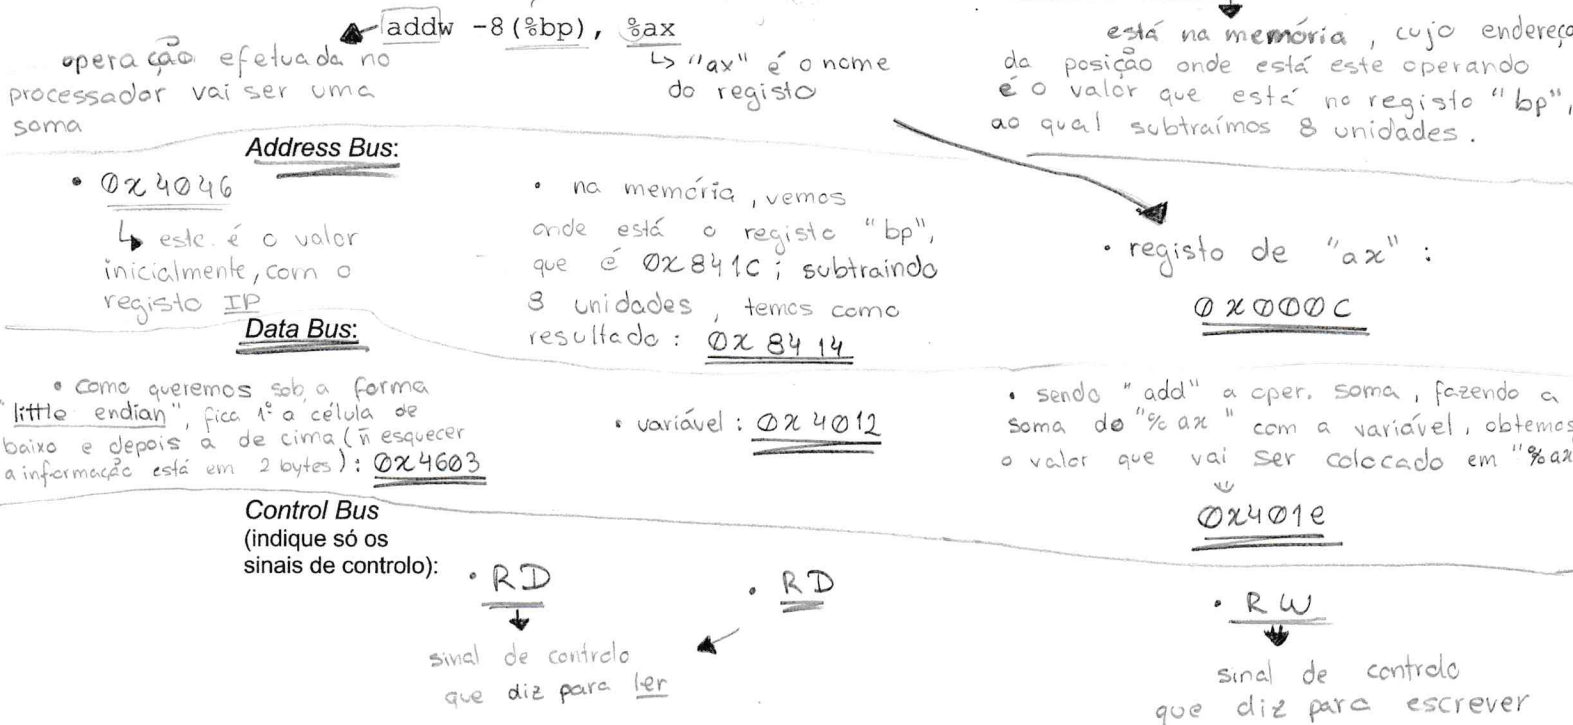 addw -8(%bp), %ax
operação efetuada no
processador vai ser uma
soma
↳ "ax" é o nome
do registo
está na memória, cujo endereço
da posição onde está este operando
é o valor que está no registo "bp",
ao qual subtraímos 8 unidades.
Address Bus:
• 0x4046
↳ este é o valor
inicialmente, com o
registo IP
• na memória, vemos
onde está o registo "bp",
que é 0x841C; subtraindo
8 unidades, temos como
resultado: 0x8414
• registo de "ax":
0x000C
Data Bus:
• Como queremos sob a forma
"little endian", fica 1º a célula de
baixo e depois a de cima (ñ esquecer
a informação está em 2 bytes): 0x4603
• variável: 0x4012
• sendo "add" a oper. soma, fazendo a
soma do "%ax" com a variável, obtemos
o valor que vai ser colocado em "%ax
0x401e
Control Bus
(indique só os
sinais de controlo):
• RD
• RD
• RW
sinal de controlo
que diz para ler
sinal de controlo
que diz para escrever